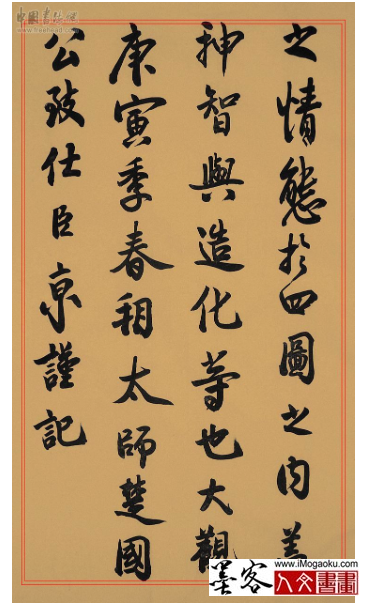 之情態於四圖之内蓋
神智與造化等也大觀
庚寅季春朔太師楚國
公致仕臣京謹記
墨客
www.iMogaoku.com
人文書畫